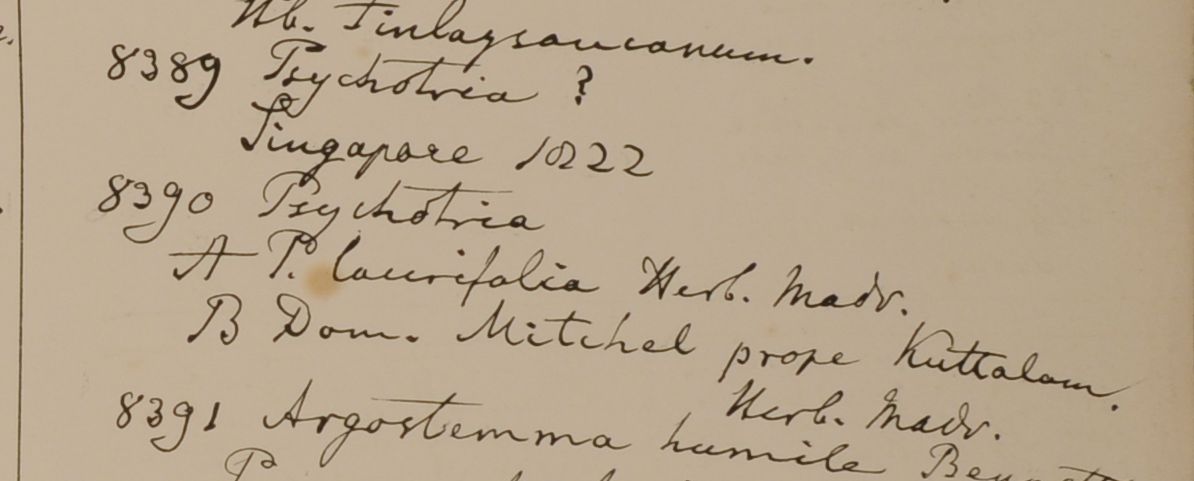 Hb. Finlaysonianum.
8389 Psychotria ?
Singapore 1822
8390 Psychotria
A P. laurifolia Herb. Madr.
B Dom. Mitchel prope Kuttalam.
Herb. Madr.
8391 Argostemma humile